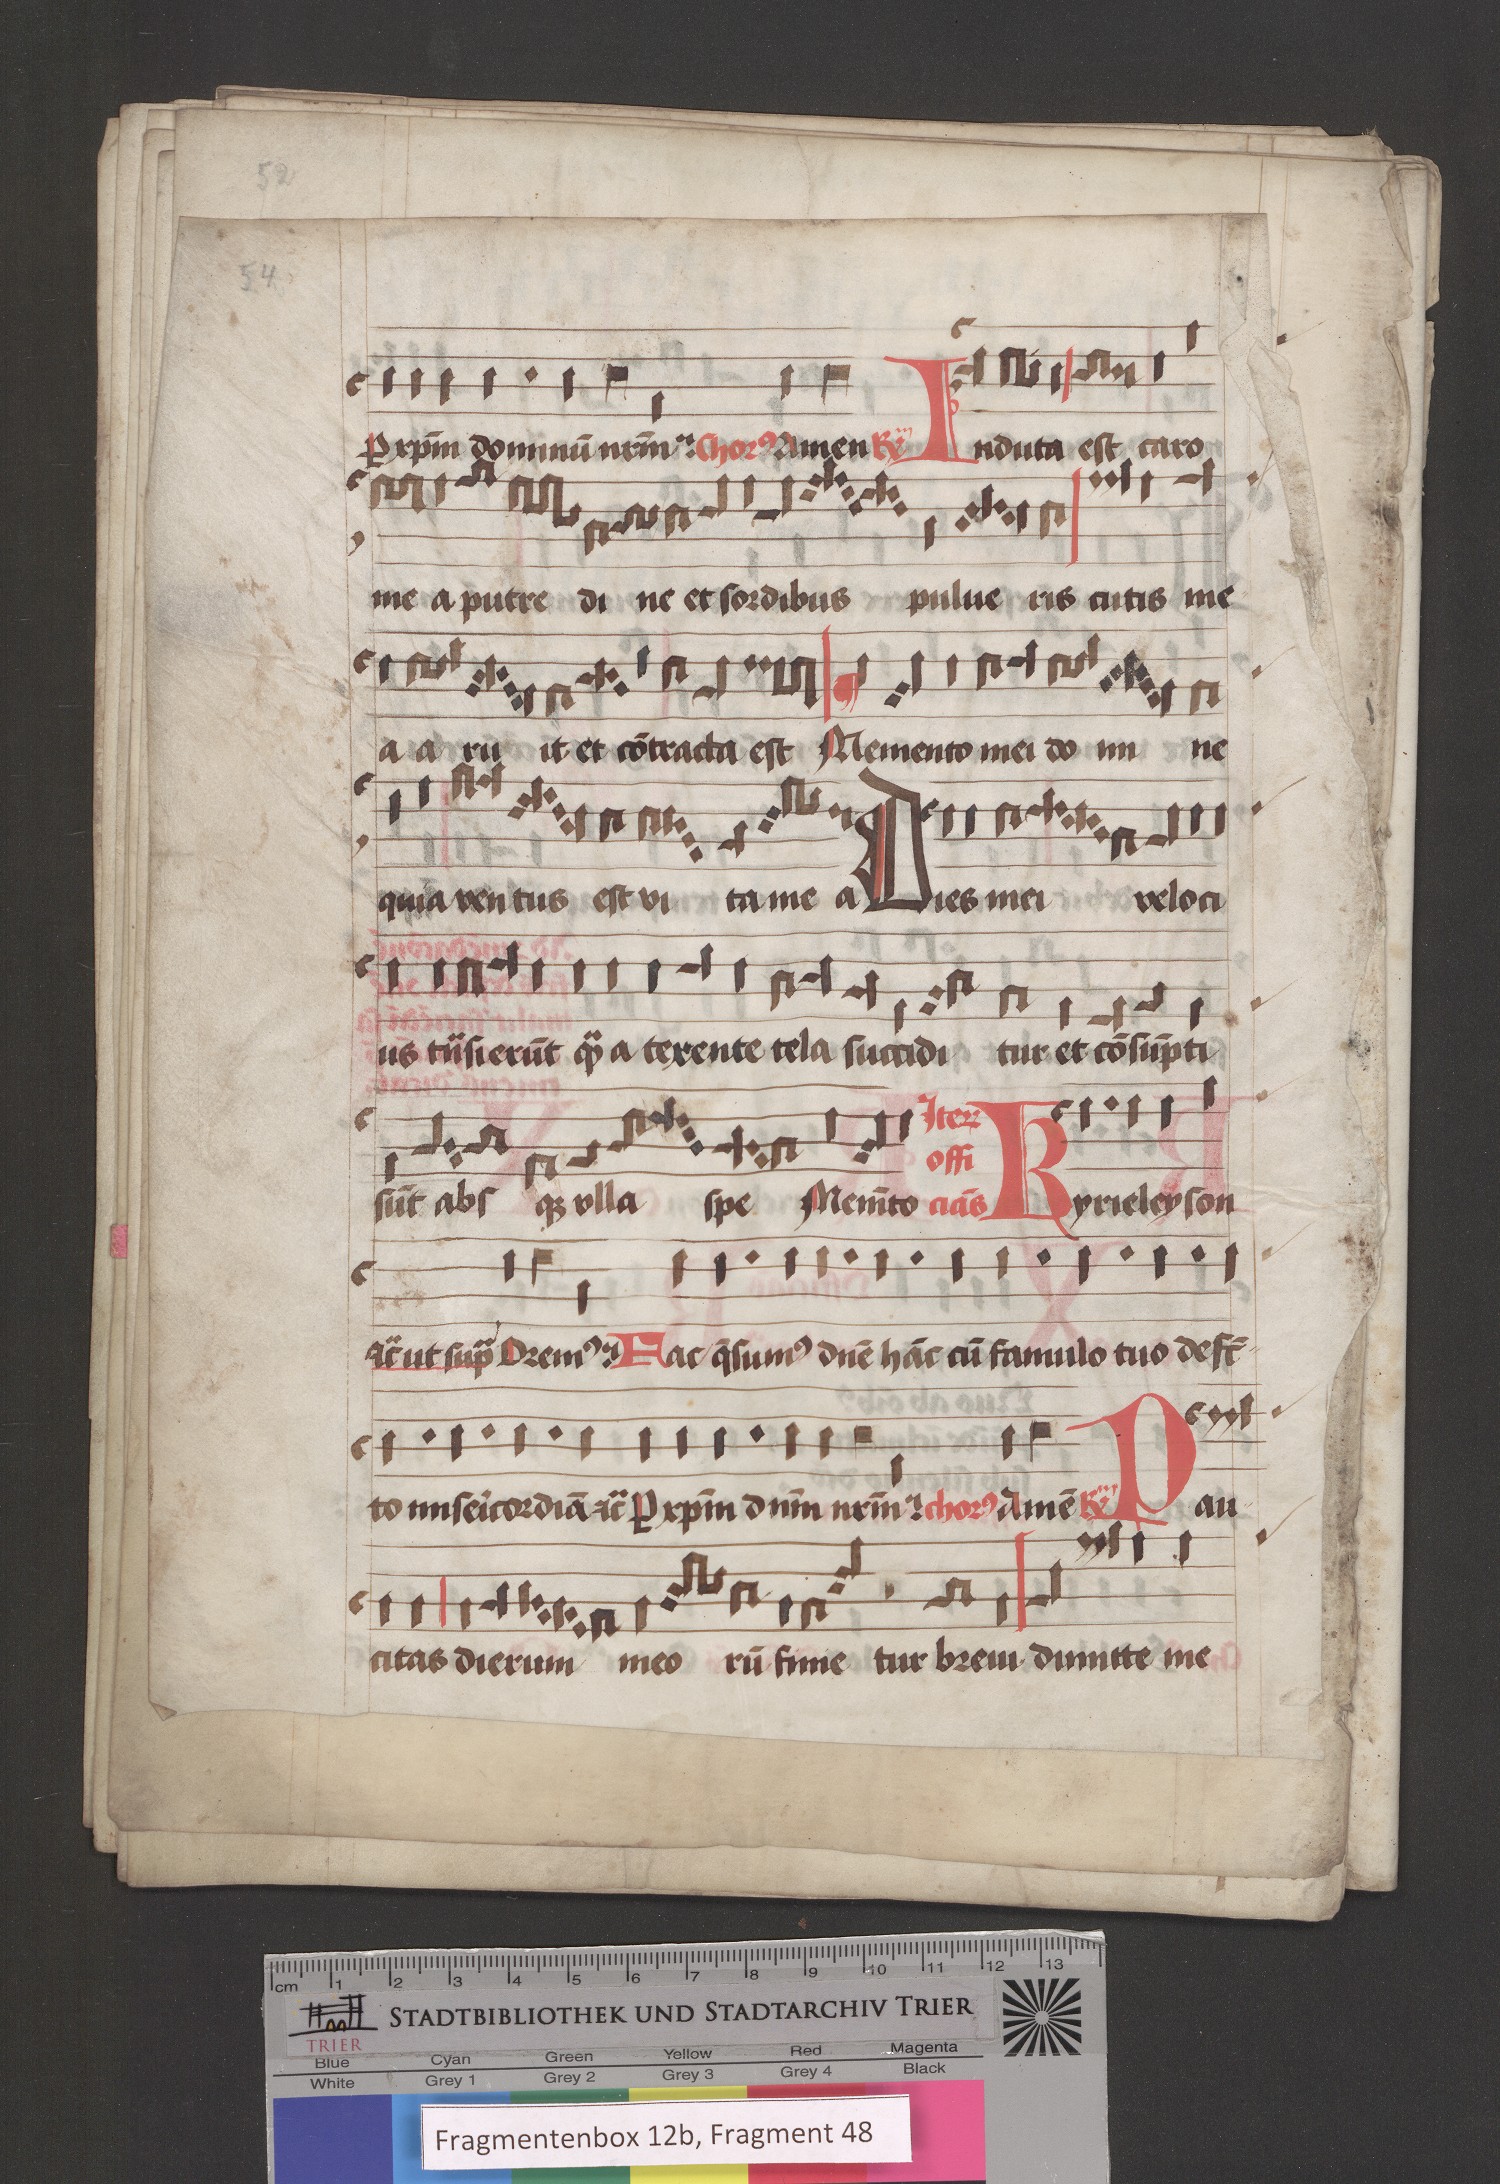 52
54
P xp̄m dominū nr̄m Chorꝰ Amen Ry̅ Induta est caro
me a putre di ne et sordibus pulue ris cutis me
a a ru it et cōtracta est Memento mei do mi ne
quia ven tus est vi ta me a Dies mei veloci
us tͣsierūt qͣ a texente tela succidi tur et cōsūpti
sūt abs qꝫ vlla spe Mem̄to Kyrieleyson
offi
ciās
ac̄ ut supͣ Oremꝰ Fac q̄sumꝰ dn̄e hāc cū famulo tuo defc̄
to misericordiā ac̄ P xp̄m dn̄m nr̄m chorꝰ Amē Ry̅ Pau
citas dierum meo rū finie tur breui dimitte me
cm 1 2 3 4 5 6 7 8 9 10 11 12 13
STADTBIBLIOTHEK UND STADTARCHIV TRIER
TRIER
Blue Cyan Green Yellow Red Magenta
White Grey 1 Grey 2 Grey 3 Grey 4 Black
Fragmentenbox 12b, Fragment 48